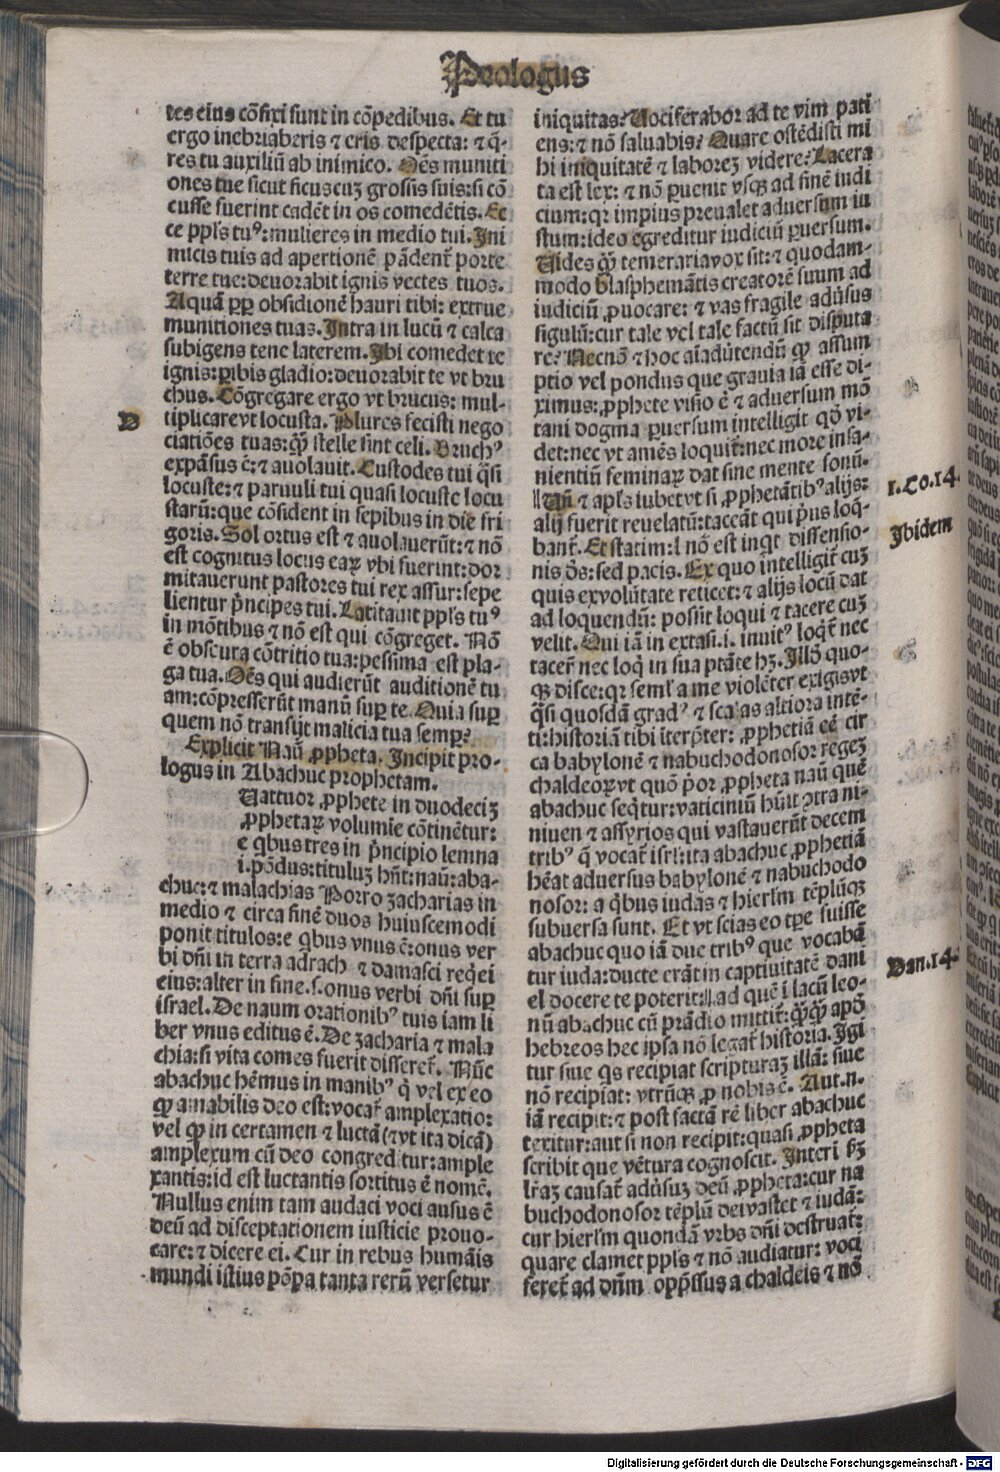 Prologus
tes eius cõfixi sunt in cõpedibus. Et tu
ergo inebriaberis ⁊ eris despecta: ⁊ q̃-
res tu auxiliũ ab inimico. Oẽs muniti
ones tue sicut ficus cuȝ grossis suis: si cõ
cusse fuerint cadẽt in os comedẽtis. Ec
ce ppl's tuꝰ: mulieres in medio tui. Ini
micis tuis ad apertionẽ pãdent̃ porte
terre tue: deuorabit ignis vectes tuos.
Aquã ꝓp obsidionẽ hauri tibi: extrue
munitiones tuas. Intra in lucũ ⁊ calca
subigens tene laterem. Ibi comedet te
ignis: ꝑibis gladio: deuorabit te vt bru
chus. Cõgregare ergo vt brucus: mul-
D
tiplicare vt locusta. Plures fecisti nego
ciatiões tuas: q̃ꝫ stelle sint celi. Bruchꝰ
expãsus ẽ: ⁊ auolauit. Custodes tui q̃si
locuste: ⁊ paruuli tui quasi locuste locu
starũ: que cõsident in sepibus in die fri
goris. Sol ortus est ⁊ auolauerũt: ⁊ nõ
est cognitus locus eaꝝ vbi fuerint: dor
mitauerunt pastores tui rex assur: sepe
lientur p̃ncipes tui. Latitauit ppl's tuꝰ
in mõtibus ⁊ nõ est qui cõgreget. Nõ
ẽ obscura cõtritio tua: pessima est pla-
ga tua. Oẽs qui audierũt auditionẽ tu
am: cõpresserũt manũ suꝑ te. Quia suꝑ
quem nõ transijt malicia tua semꝑ?
Explicit Naũ ꝓpheta. Incipit pro-
logus in Abachuc prophetam.
Uattuor ꝓphete in duodeciȝ
ꝓphetaꝝ volumie cõtinẽtur:
e qbus tres in p̃ncipio lemna
i. põdus: tituluȝ hñt: naũ: aba-
chuc: ⁊ malachias Porro zacharias in
medio ⁊ circa finẽ duos huiuscemodi
ponit titulos: e qbus vnus ẽ: onus ver
bi dñi in terra adrach ⁊ damasci reqẽi
eius: alter in fine. s. onus verbi dñi suꝑ
israel. De naum orationibꝰ tuis iam li
ber vnus editus ẽ. De zacharia ⁊ mala
chia: si vita comes fuerit disseret̃. Nũc
abachuc hẽmus in manibꝰ q̃ vel ex eo
qꝫ amabilis deo est: vocat̃ amplexatio:
vel qꝫ in certamen ⁊ luctã (⁊ vt ita dicã)
amplexum cũ deo congreditur: ample
xantis: id est luctantis sortitus ẽ nomẽ.
Nullus enim tam audaci voci ausus ẽ
deũ ad disceptationem iusticie prouo-
care: ⁊ dicere ei. Cur in rebus humãis
mundi istius põpa tanta rerũ versetur
iniquitas? Uociferabor ad te vim pati
ens: ⁊ nõ saluabis? Quare ostẽdisti mi
hi iniquitatẽ ⁊ laboreȝ videre? Lacera
ta est lex: ⁊ nõ ꝑuenit vsqȝ ad finẽ iudi
cium: qr impius preualet aduersum iu
stum: ideo egreditur iudiciũ ꝑuersum.
Uides qꝫ temeraria vox sit: ⁊ quodam-
modo blasphemãtis creatorẽ suum ad
iudiciũ ꝓuocare: ⁊ vas fragile adũsus
figulũ: cur tale vel tale factũ sit disputa
re? Necnõ ⁊ hoc aĩaduẽtendũ qꝫ assum
ptio vel pondus que grauia iã esse di-
ximus: ꝓphete visio ẽ ⁊ aduersum mõ
tani dogma ꝑuersum intelligit qõ vi-
det: nec vt amẽs loquit̃: nec more insa-
nientiũ feminaꝝ dat sine mente sonũ.
Uñ ⁊ apl's iubet vt si ꝓphetãtibꝰ alijs:
1. Co. 14.
alij fuerit reuelatũ: taceãt qui p̃us loq̃-
Ibidem
bant̃. Et statim: l nõ est inqt dissensio-
nis ds: sed pacis. Ex quo intelligit̃ cuȝ
quis ex volũtate reticet: ⁊ alijs locũ dat
ad loquendũ: possit loqui ⁊ tacere cuȝ
velit. Qui iã in extasi. i. inuitꝰ loqt̃ nec
tacer̃ nec loq̃ in sua ptãte hȝ. Illõ quo-
qȝ disce: qr seml' a me violẽter exigis vt
q̃si quosdã gradꝰ ⁊ scalas altiora intẽ-
ti: historiã tibi iterp̃ter: ꝓphetiã eẽ cir
ca babylonẽ ⁊ nabuchodonosor regeȝ
chaldeoꝝ vt quõ p̃or ꝓpheta naũ quẽ
abachuc seqtur: vaticiniũ hũit ꝯtra ni-
niuen ⁊ assyrios qui vastauerũt decem
tribꝰ q̃ vocat̃ isrl': ita abachuc ꝓphetiã
hẽat aduersus babylonẽ ⁊ nabuchodo
nosor: a qbus iudas ⁊ hierl'm tẽplũqȝ
subuersa sunt. Et vt scias eo tꝑe fuisse
abachuc quo iã due tribꝰ que vocabã
tur iuda: ducte erãt in captiuitatẽ dani
Dan. 14.
el docere te poterit: ad quẽ i lacũ leo-
nũ abachuc cũ prãdio mittit̃: q̃ꝫq̃ꝫ apõ
hebreos hec ipsa nõ legat̃ historia. Igi
tur siue qs recipiat scripturaȝ illã: siue
nõ recipiat: vtrũqȝ ꝓ nobis ẽ. Aut .n.
iã recipit: ⁊ post factã rẽ liber abachuc
texitur: aut si non recipit: quasi ꝓpheta
scribit que vẽtura cognoscit. Interi fȝ
lr̃aȝ causat̃ adũsuȝ deũ ꝓpheta: cur na
buchodonosor tẽplũ dei vastet ⁊ iudã:
cur hierl'm quondã vrbs dñi destruat̃:
quare clamet ppl's ⁊ nõ audiatur: voci
feret̃ ad dñm opp̃ssus a chaldeis ⁊ nõ
Digitalisierung gefördert durch die Deutsche Forschungsgemeinschaft - DFG